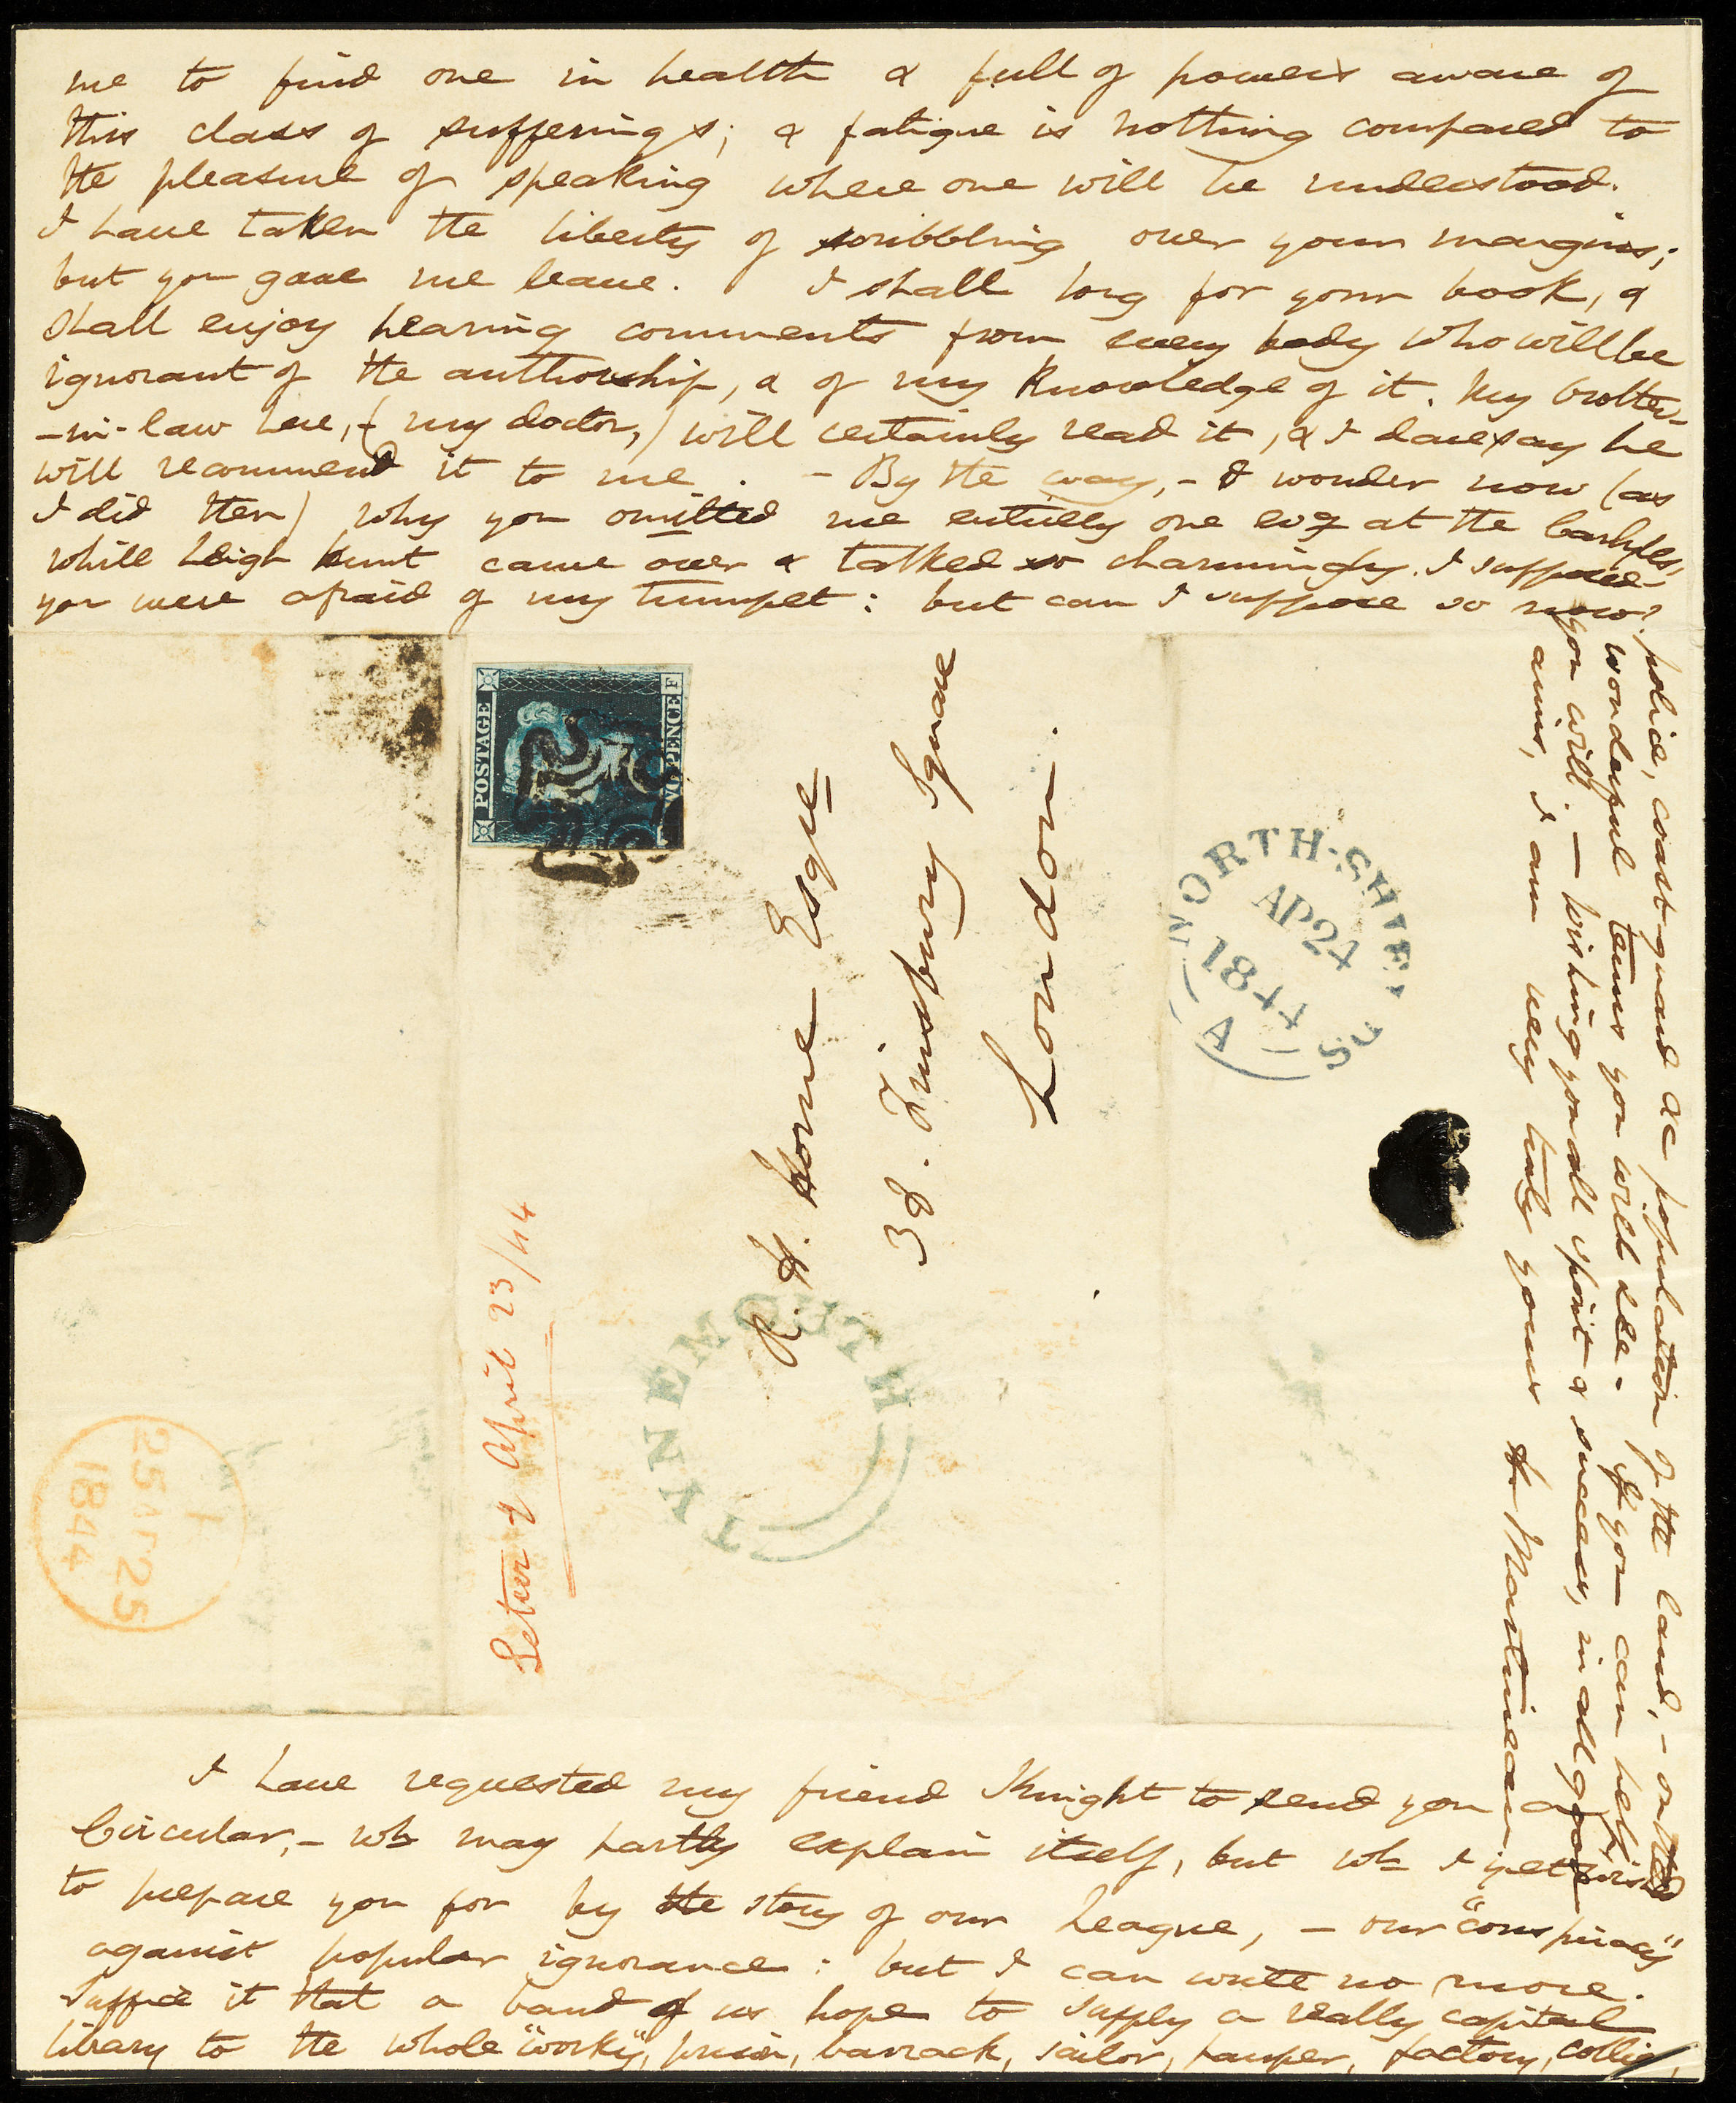 me to find one in health & full of powers aware of
this class of sufferings; & fatigue is nothing compared to
the pleasure of speaking where one will be understood.
I have taken the liberty of scribbling over your margins;
but you gave me leave. I shall long for your book, &
shall enjoy hearing comments from every body who will be
ignorant of the authorship, & of my knowledge of it. My brother-
-in-law here, (my doctor,) will certainly read it, & I daresay he
will recommend it to me. - By the way, - I wonder now (as
I did then) why you omitted me entirely one evg at the Carlyles,
while Leigh Hunt came over & talked so charmingly. I supposed
you were afraid of my trumpet: but can I suppose so now?
POSTAGE
F
PENCE
R. H. Horne Esqre
38. Finsbury Square
London.
NORTH-SHIELDS
AP 24
1844
A
TYNEMOUTH
Letter of April 23/44
1
25 AP 25
1844
I have requested my friend Knight to send you a
Circular, - wh may partly explain itself, but wh I yet wished
to prepare you for by the story of our League, - our "conspiracy"
against popular ignorance: but I can write no more.
Suffice it that a band of us hope to supply a really capital
library to the whole "worky", prison, barrack, sailor, pauper, factory, collier,
police, coast-guard &c population of the land, - on the
wonderful terms you will see. If you can help,
you will. - Wishing you all spirit & success, in all good
aims, I am very truly yours H Martineau.